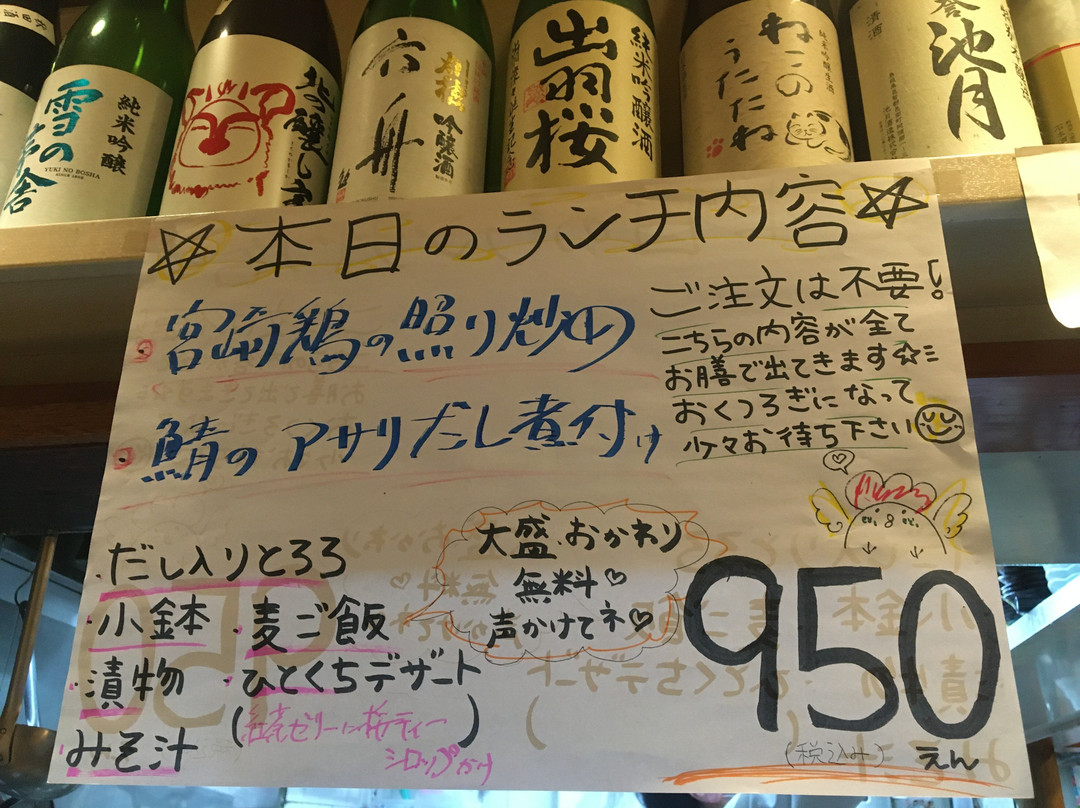 純米吟醸
雪の茅舎
YUKI NO BOSHA
北の醸し
六舟
吟醸酒
純米吟醸酒
出羽桜
ねこの
うたたね
清酒
池月
☆本日のランチ内容☆
・宮崎鶏の照り炒め
・鯖のアサリだし煮付け
ご注文は不要!
こちらの内容が全て
お膳で出てきます☆ミ
おくつろぎになって
少々お待ち下さい
・だし入りとろろ
・小鉢本
・麦ご飯
・漬物
・ひとくちデザート
ゼリーに桜ティー
シロップかけ
・みそ汁
大盛、おかわり
無料♡
声かけてネ♡
950
(税込み)
えん